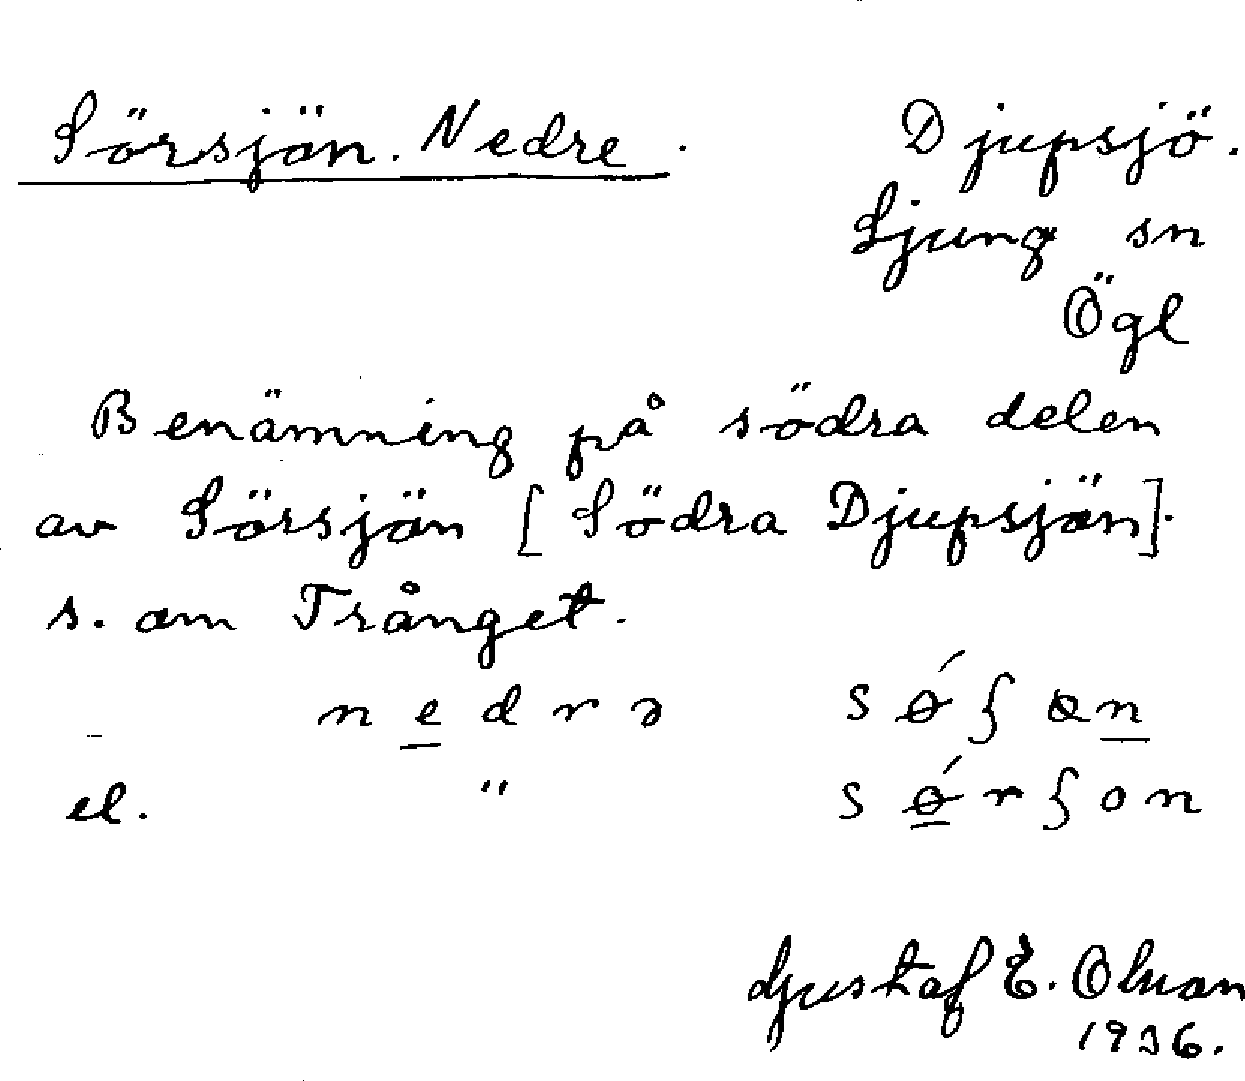 Sörsjön. Nedre. Djupsjö.
Ljung sn
Ögl
Benämning på södra delen
av Sörsjön [Södra Djupsjön].
s. om Trånget.
nedrə sǿʃɵn
el. " sǿrʃon
Gustaf E. Olsson
1936.